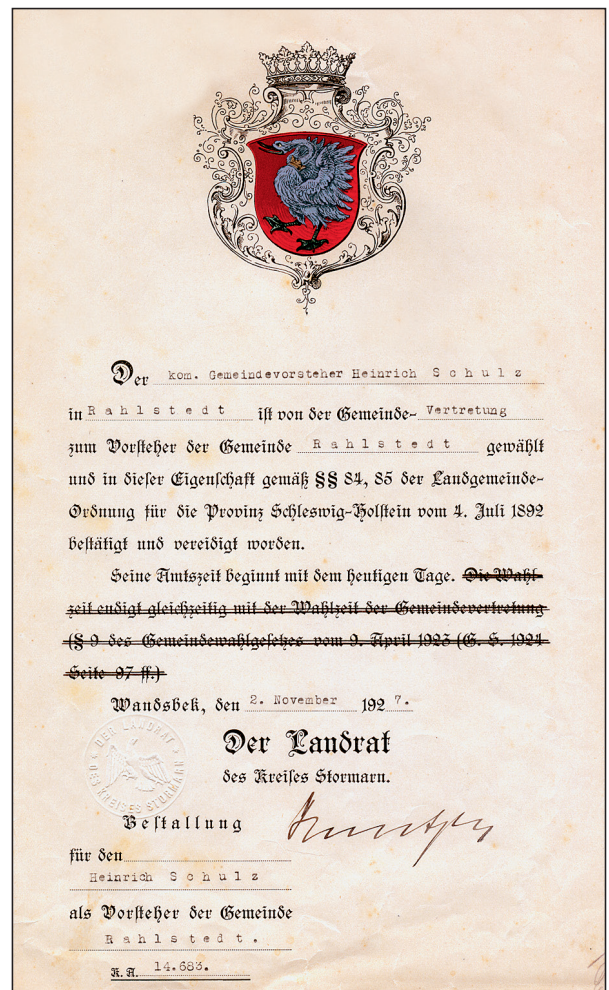 Der kom. Gemeindevorsteher Heinrich Schulz
in Rahlstedt ist von der Gemeinde- Vertretung
zum Vorsteher der Gemeinde Rahlstedt gewählt
und in dieser Eigenschaft gemäß §§ 84, 85 der Landgemeinde-
Ordnung für die Provinz Schleswig-Holstein vom 4. Juli 1892
bestätigt und vereidigt worden.
Seine Amtszeit beginnt mit dem heutigen Tage. Die Wahl-
zeit endigt gleichzeitig mit der Wahlzeit der Gemeindevertretung
(§ 9 des Gemeindewahlgesetzes vom 9. April 1923 (G. S. 1924
Seite 97 ff.)
Wandsbek, den 2. November 1927.
Der Landrat
des Kreises Stormarn.
DER LANDRAT
DES KREISES STORMARN
Bestallung
für den
Heinrich Schulz
als Vorsteher der Gemeinde
Rahlstedt.
K. A. 14.683.